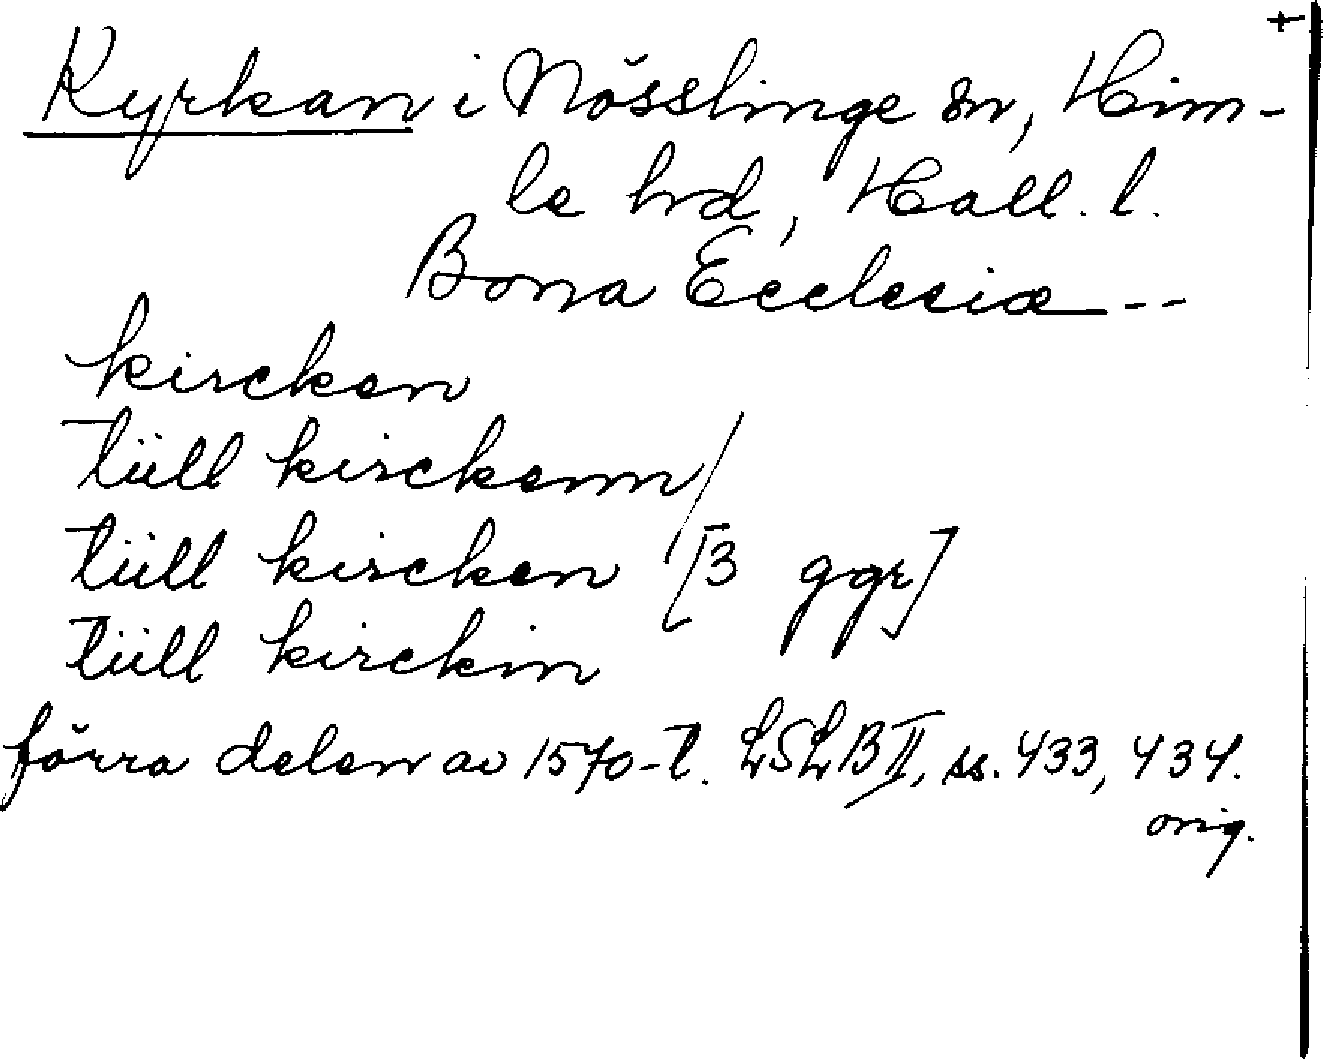 Kyrkan i Nösslinge sn, Him-
le hd, Hall. l.
Bona Ecclesiæ --
kircken
tüll kirckenn/
tüll kircken [3 ggr]
tüll kirckin
förra delen av 1570-t. LSLB II, ss. 433, 434.
orig.